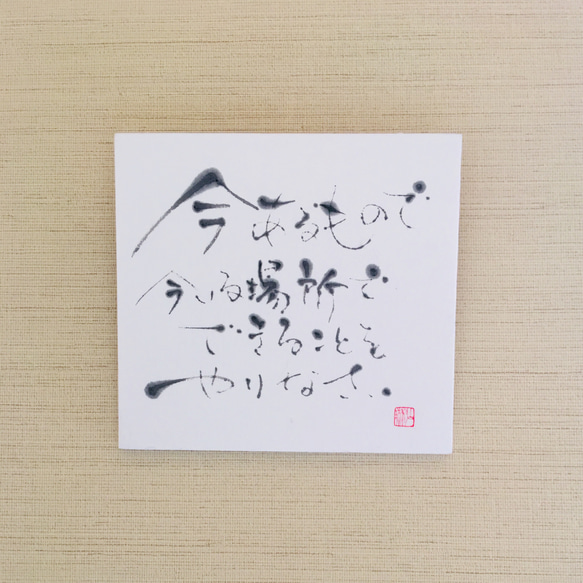 今あるもので
今いる場所で
できることを
やりなさい。